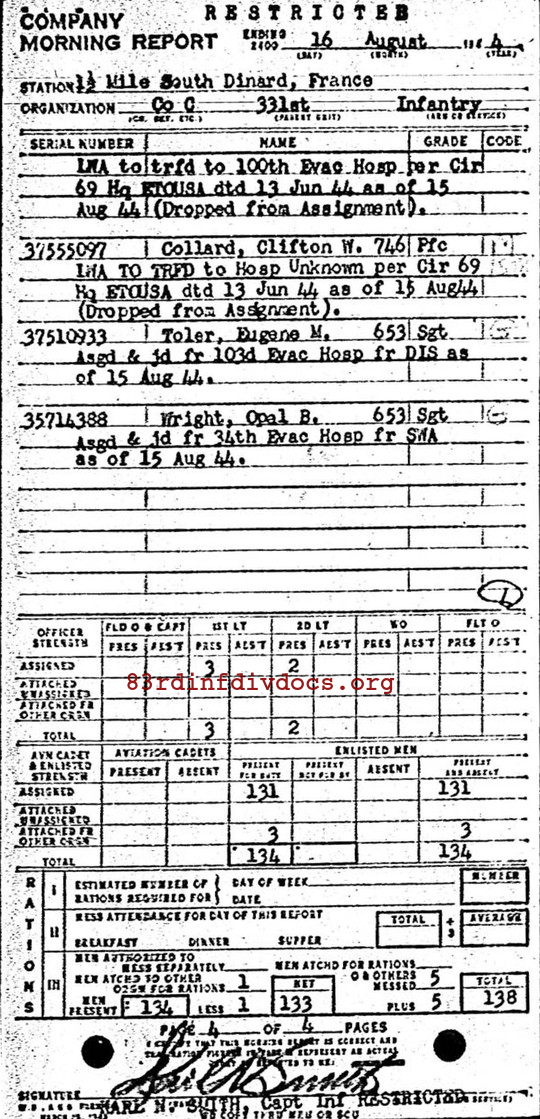 RESTRICTED
COMPANY
MORNING REPORT
ENDING 2400 16 August 194 4
(DAY) (MONTH) (YEAR)
STATION 1½ Mile South Dinard, France
ORGANIZATION Co C 331st Infantry
(CO. DET. ETC.) (PARENT UNIT) (ARM OR SERVICE)
SERIAL NUMBER NAME GRADE CODE
LWA to trfd to 100th Evac Hosp per Cir
69 Hq ETOUSA dtd 13 Jun 44 as of 15
Aug 44 (Dropped from Assignment).
37555097 Collard, Clifton W. 746 Pfc
LWA TO TRFD to Hosp Unknown per Cir 69
Hq ETOUSA dtd 13 Jun 44 as of 15 Aug44
(Dropped from Assignment).
37510933 Toler, Eugene M. 653 Sgt
Asgd & jd fr 103d Evac Hosp fr DIS as
of 15 Aug 44.
35714388 Wright, Opal B. 653 Sgt
Asgd & jd fr 34th Evac Hosp fr SWA
as of 15 Aug 44.
OFFICER STRENGTH
FLD O & CAPT 1ST LT 2D LT WO FLT O
PRES ABS'T PRES ABS'T PRES ABS'T PRES ABS'T PRES ABS'T
ASSIGNED 3 2
ATTACHED UNASSIGNED
83rdinfdivdocs.org
ATTACHED FR OTHER ORGN
TOTAL 3 2
AVN CADET & ENLISTED STRENGTH
AVIATION CADETS ENLISTED MEN
PRESENT ABSENT PRESENT FOR DUTY PRESENT NOT FOR DY ABSENT PRESENT AND ABSENT
ASSIGNED 131 131
ATTACHED UNASSIGNED
ATTACHED FR OTHER ORGN 3 3
TOTAL 134 134
RATIONS
I ESTIMATED NUMBER OF RATIONS REQUIRED FOR { DAY OF WEEK
DATE
NUMBER
II MESS ATTENDANCE FOR DAY OF THIS REPORT
TOTAL ÷ 3 AVERAGE
BREAKFAST DINNER SUPPER
III MEN AUTHORIZED TO MESS SEPARATELY
MEN ATCHD FOR RATIONS
MEN ATCHD TO OTHER ORGN FOR RATIONS 1
NET
OR OTHERS MESSED 5
TOTAL
MEN PRESENT 134 LESS 1 133 PLUS 5 138
PAGE 4 OF 4 PAGES
I CERTIFY THAT THIS MORNING REPORT IS CORRECT AND
SIGNATURE
KARL N. SMITH, Capt Inf RESTRICTED